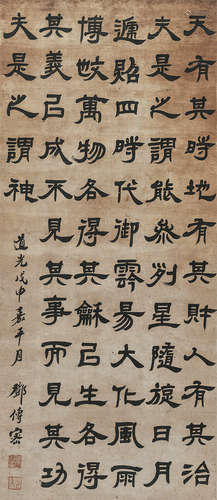 天有其時地有其財人有其治
夫是之謂能參列星隨旋日月
遞炤四時代御霒昜大化風雨
博施萬物各得其龢㠯生各得
其養㠯成不見其事而見其功
夫是之謂神
道光戊申嘉平月 鄧傳密